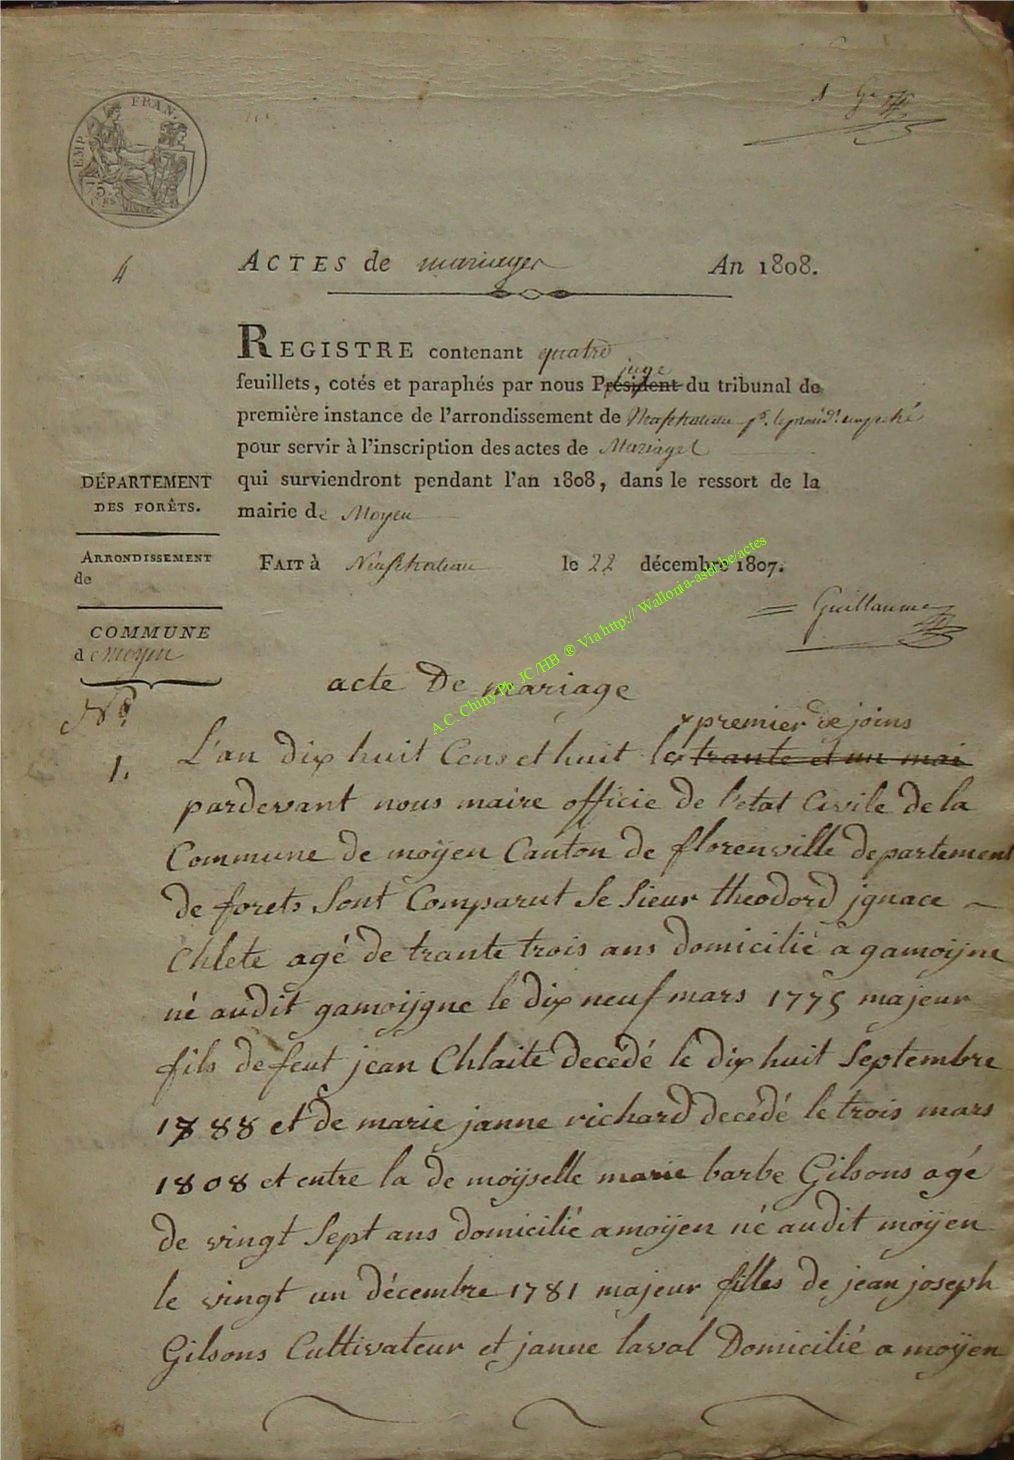 EMP. FRAN.
75
1 G
4
ACTES de mariages An 1808.
REGISTRE contenant quatre
juge
feuillets, cotés et paraphés par nous Président du tribunal de
première instance de l'arrondissement de Neufchateau pr. le présidt. empeché
pour servir à l'inscription des actes de Mariages
qui surviendront pendant l'an 1808, dans le ressort de la
mairie de Moyen
DÉPARTEMENT
DES FORÊTS.
ARRONDISSEMENT
de
COMMUNE
de moyen
FAIT à Neufchateau le 22 décembre 1807.
Guillaume
A.C. Chiny Ph. JC /HB ® Via http:// Wallonia-asbl.be/actes
acte De mariage
No
1.
x premier de joins
L'an dix huit Cens et huit le trante et un mai
pardevant nous maire officie de l'etat Civile de la
Commune de moÿen Canton de florenville departement
de forets Sont Comparut Le Sieur theodord jgnace
Chlete agé de trante trois ans domicilié a gamoijne
né audit gamoijgne le dix neuf mars 1775 majeur
fils de feut jean Chlaite decédé le dix huit Septembre
1788 et de marie janne richard decédé le trois mars
1808 et entre la de moÿselle marie barbe Gilsons agé
de vingt Sept ans domicilié a moÿen né audit moÿen
le vingt un décembre 1781 majeur filles de jean joseph
Gilsons Cultivateur et janne laval Domicilié a moÿen